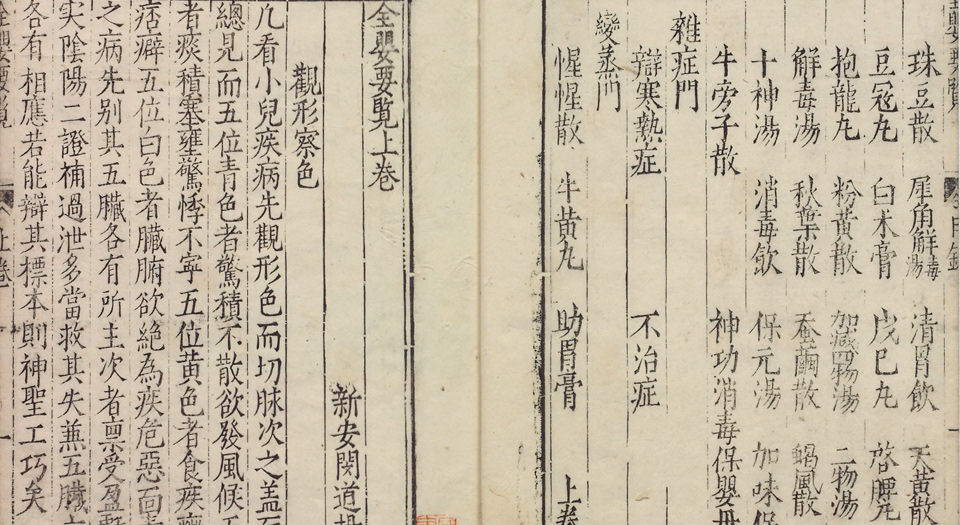 珠豆散 犀角解毒湯 清胃飲 天黃散
豆冦丸 白朮膏 戊巳丸 啓脾丸
抱龍丸 粉黃散 加減四物湯 二物湯
解毒湯 秋葉散 蚕繭散 蝎風散
十神湯 消毒飲 保元湯 加味保
牛旁子散 神功消毒保嬰丹
雜症門
辯寒熱症 不治症
變蒸門
惺惺散 牛黃丸 助胃膏 上卷
全嬰要覧上卷
新安閔道揚
觀形察色
凡看小兒疾病先觀形色而切脉次之盖
總見而五位青色者驚積不散欲發風候
者痰積塞壅驚悸不寧五位黃色者食疾
痞癖五位白色者臟腑欲絕為疾危惡面
之病先别其五臟各有所主次者禀受盈
実隂陽二證補過泄多當救其失兼五臟
各有相應若能辯其標本則神聖工巧矣
全嬰要覧 上卷 一